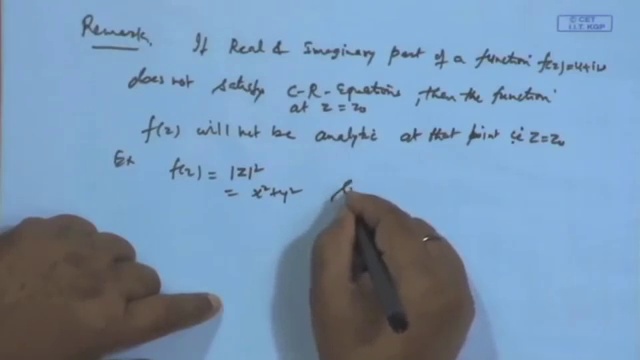 © CET
I.I.T. KGP
Remark. If Real & Imaginary part of a function f(z)=u+iv
does not satisfy C-R-Equations, then the function
at z=z₀
f(z) will not be analytic at that point i.e z=z₀
Ex f(z) = |z|²
= x²+y²